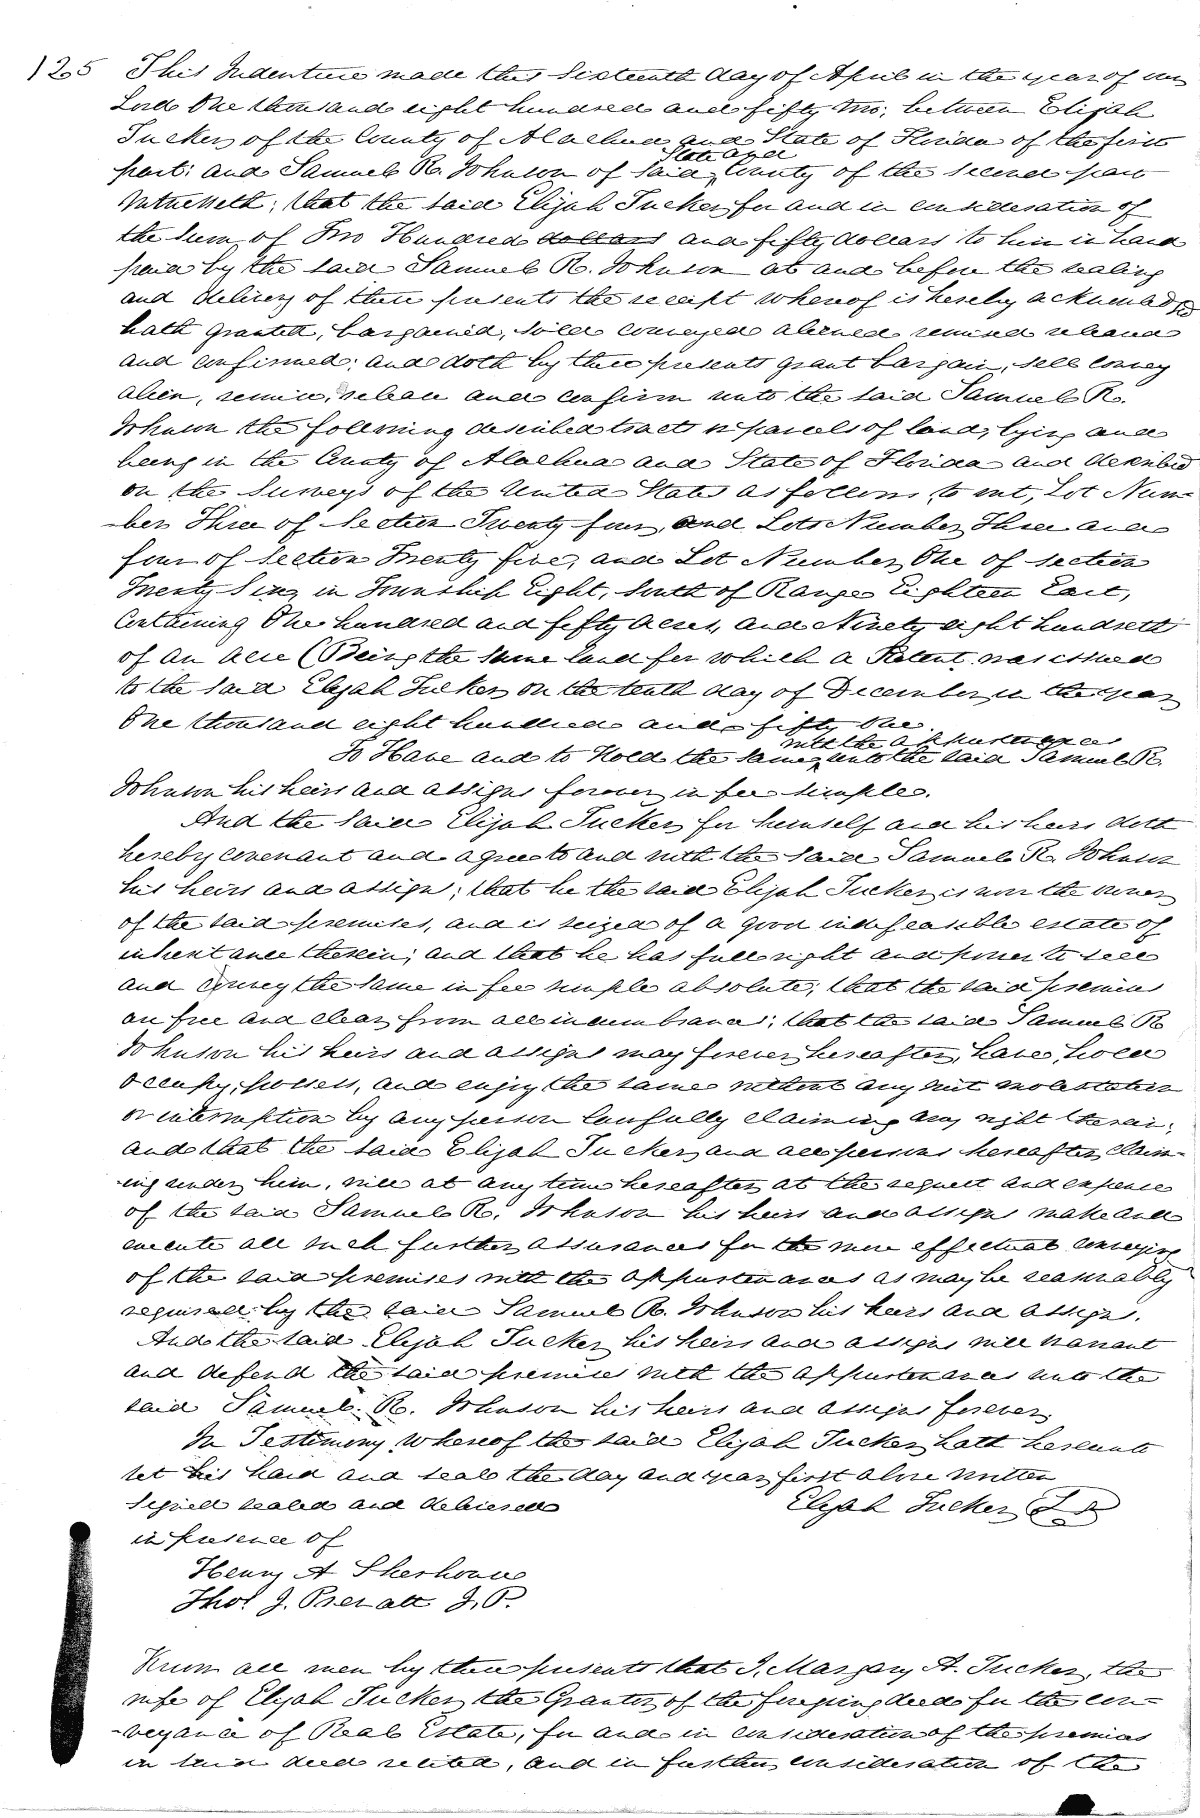 125 This Indenture made this Sixteenth day of April in the year of our
Lord One thousand eight hundred and fifty two; between Elijah
Tucker of the County of Alachua and State of Florida of the first
part; and Samuel R. Johnson of said State and County of the second part
Witnesseth; that the said Elijah Tucker for and in consideration of
the sum of Two Hundred dollars and fifty dollars to him in hand
paid by the said Samuel R. Johnson at and before the sealing
and delivery of these presents the receipt whereof is hereby acknowledged
hath granted, bargained, sold conveyed aliened remised released
and confirmed; and doth by these presents grant bargain, sell convey
alien, remise, release and confirm unto the said Samuel R.
Johnson the following described tracts or parcels of land, lying and
being in the County of Alachua and State of Florida and described
on the Surveys of the United States as follows, to wit, Lot Num-
-ber Three of Section Twenty four, and Lots Number Three and
four of Section Twenty five, and Lot Number One of section
Twenty Six, in Township Eight, South of Range Eighteen East,
Containing One hundred and fifty Acres, and Ninety eight hundreth
of an acre (Being the same land for which a Patent was issued
to the said Elijah Tucker on the tenth day of December, in the year
One thousand eight hundred and fifty One.
To Have and to Hold the same, with the appurtenances unto the said Samuel R.
Johnson his heirs and assigns forever, in fee simple.
And the said Elijah Tucker for himself and his heirs doth
hereby covenant and agree to and with the said Samuel R. Johnson
his heirs and assigns; that he the said Elijah Tucker is now the owner
of the said premises, and is seized of a good indefeasible estate of
inheritance therein; and that he has full right and power to sell
and convey the same in fee simple absolute; that the said premises
are free and clear from all incumbrances; that the said Samuel R
Johnson his heirs and assigns may forever hereafter, have, hold
occupy, possess, and enjoy the same without any suit molestation
or interruption by any person lawfully claiming any right therein;
and that the said Elijah Tucker and all persons hereafter claim-
-ing under him, will at any time hereafter at the request and expense
of the said Samuel R. Johnson his heirs and assigns make and
execute all such further assurances for the more effectual conveying
of the said premises with the appurtenances as may be reasonably
required by the said Samuel R. Johnson his heirs and assigns.
And the said Elijah Tucker his heirs and assigns will warrant
and defend the said premises with the appurtenances unto the
said Samuel R. Johnson his heirs and assigns forever.
In Testimony whereof the said Elijah Tucker hath hereunto
set his hand and seal the day and year first above written
Signed sealed and delivered Elijah Tucker LS
in presence of
Henry A
Thos. J. Prevatt J.P.
Know all men by these presents that I, Margary A. Tucker, the
wife of Elijah Tucker the Grantor of the foregoing deed for the con-
-veyance of Real Estate, for and in consideration of the premises
in said deed recited, and in further consideration of the